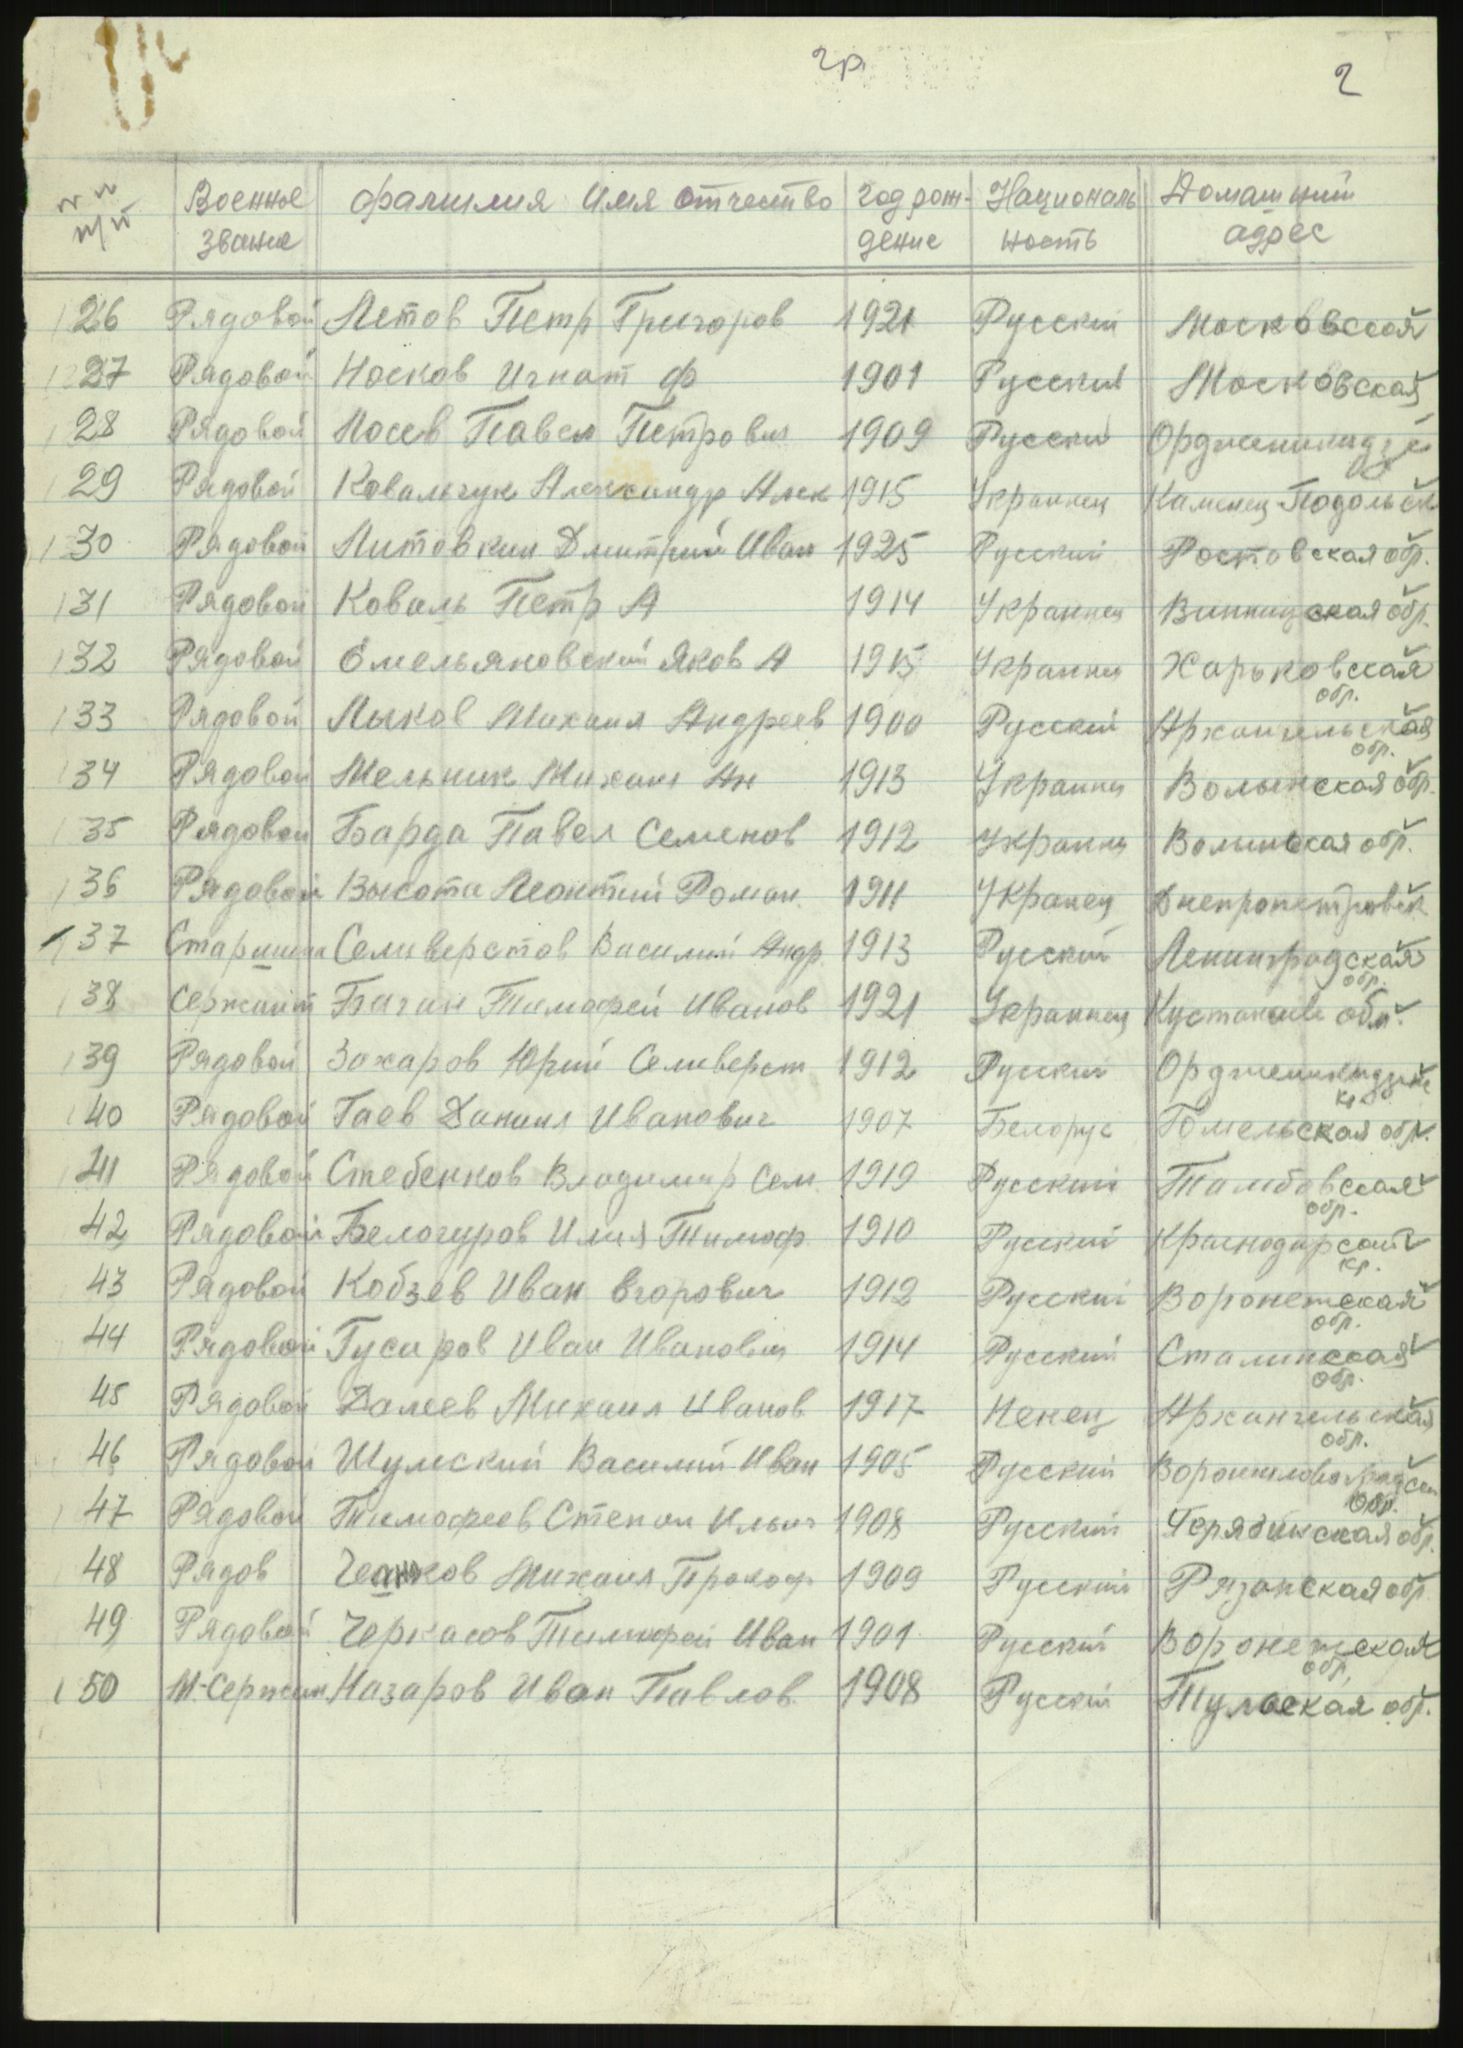 гр. 2
№ № п/п Военное звание Фамилия Имя Отчество Год рождение Национальность Домашний адрес
26 Рядовой Летов Петр Григоров 1921 Русский Московской
27 Рядовой Носков Игнат Ф 1901 Русский Московская
28 Рядовой Лосев Павел Петрович 1909 Русский
29 Рядовой Ковальчук Александр Алек 1915 Украинец Каменец-Подольск
30 Рядовой Литовкин Дмитрий Иван 1925 Русский Ростовская обр.
31 Рядовой Коваль Петр А 1914 Украинец Винницская обр.
32 Рядовой Омельяновский Яков А 1915 Украинец Харьковская обр.
33 Рядовой Лыков Михаил Андреев 1900 Русский Архангельская обр.
34 Рядовой Мельник Михаил Ан 1913 Украинец Волынская обр.
35 Рядовой Барда Павел Семенов 1912 Украинц Волынская обр.
36 Рядовой Высота Леонтий Роман. 1911 Укранец Днепропетровск
37 Старшина Селиверстов Василий Андр 1913 Русский Ленинградская обр.
38 Сержант Бачин Тимофей Иванов 1921 Украинец обл.
39 Рядовой Захаров Юрий Селиверст 1912 Русский
40 Рядовой Гаев Даниил Иванович 1907 Белорус Гомельская обр.
41 Рядовой Стебенков Владимир Сем 1919 Русский Тамбовская обр.
42 Рядовой Белогуров Илия Тимоф. 1910 Русский кр.
43 Рядовой Кобзев Иван Егорович 1912 Русский Воронежская обр.
44 Рядовой Гусаров Иван Иванович 1914 Русский Сталинская обр.
45 Рядовой Далеев Михаил Иванов 1917 Ненец Архангельская обр.
46 Рядовой Шумский Василий Иван 1905 Русский обр.
47 Рядовой Тимофеев Степан Ильич 1908 Русский обр.
48 Рядов Михаил Прокоф. 1909 Русский Рязанская обр.
49 Рядовой Черкасов Тимофей Иван 1901 Русский Воронежская обр.
50 М-Сержан Назаров Иван Павлов. 1908 Русский Тульская обр.